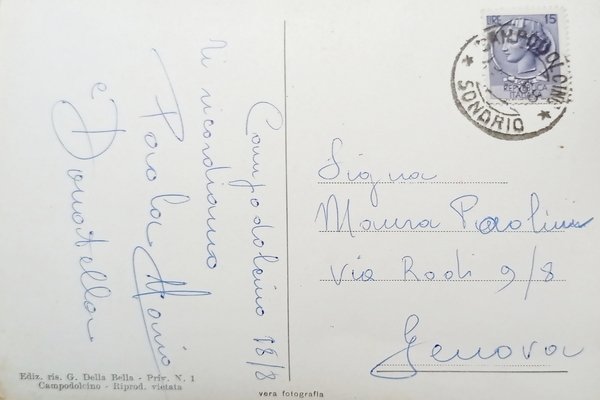 Campodolcino 18/8
Ti ricordiamo
Paola Mario
e Donatella
Ediz. ris. G. Della Bella - Priv. N. 1
Campodolcino - Riprod. vietata
vera fotografia
LIRE 15
REPUBBLICA
ITALIANA
CAMPODOLCINO
* SONDRIO *
Signa
Maura Paolini
Via Rodi 9/8
Genova